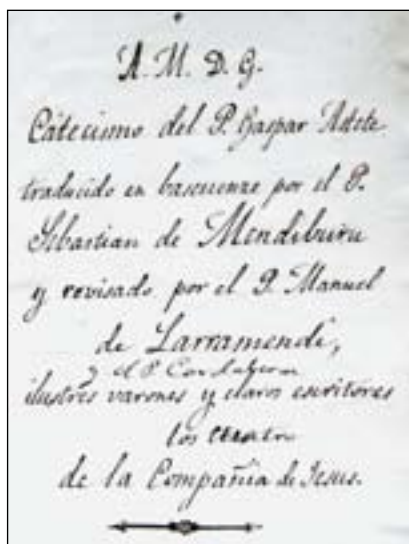 A. M. D. G.
Catecismo del P. Gaspar Astete
traducido en bascuenze por el P.
Sebastian de Mendiburu
y revisado por el P. Manuel
de Larramendi,
y el P. Cardaberaz
ilustres varones y claros escritores
los cuatro
de la Compañia de Jesus.